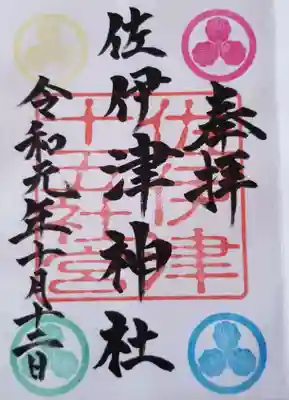 奉拝
佐伊津神社
令和元年十月十二日
佐伊津
十五社宮